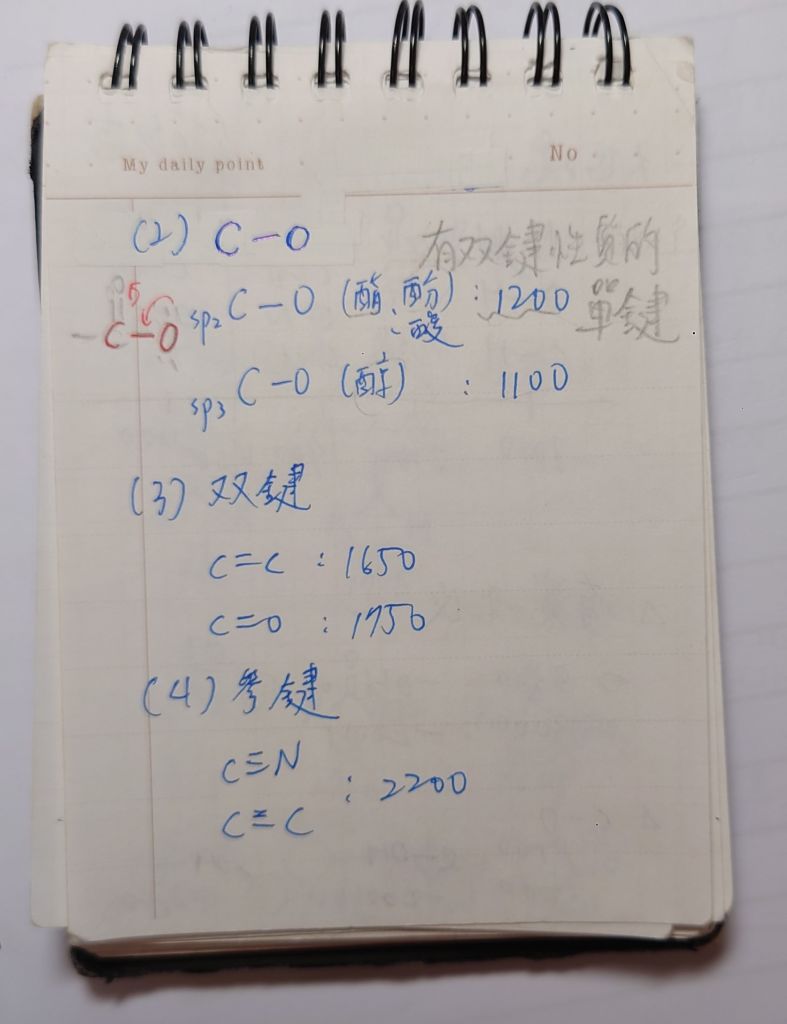 My daily point
No
(2) C-O 有双鍵性質的
sp2 C-O (酯、酚、酸) : 1200 單鍵
O
-C-O
sp3 C-O (醇) : 1100
(3) 双鍵
C=C : 1650
C=O : 1750
(4) 參鍵
C≡N
: 2200
C≡C